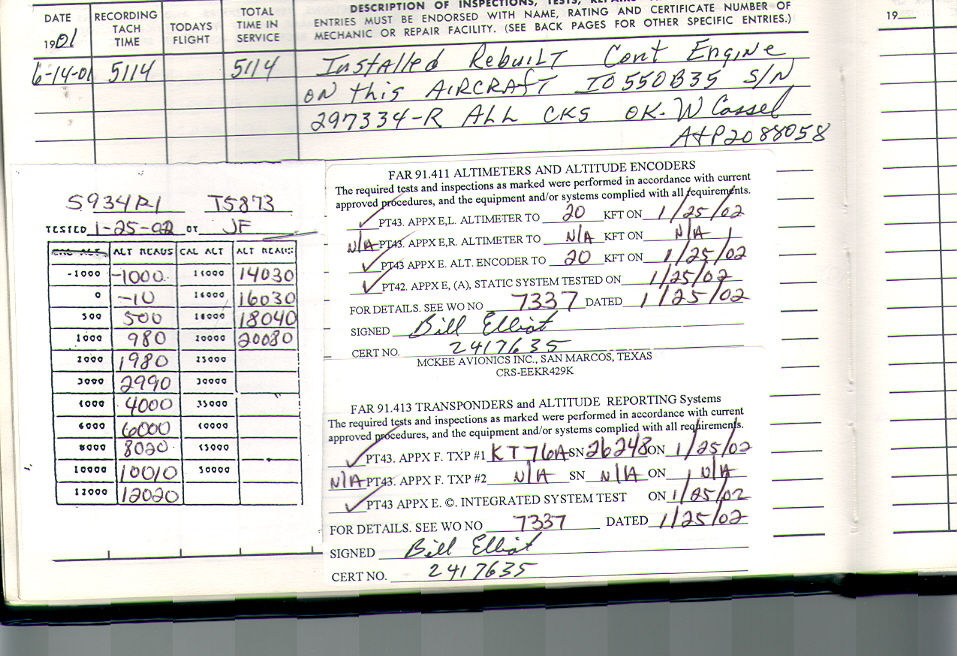 DATE
1901
RECORDING TACH TIME
TODAYS FLIGHT
TOTAL TIME IN SERVICE
DESCRIPTION OF INSPECTIONS, TESTS,
ENTRIES MUST BE ENDORSED WITH NAME, RATING AND CERTIFICATE NUMBER OF
MECHANIC OR REPAIR FACILITY. (SEE BACK PAGES FOR OTHER SPECIFIC ENTRIES.)
19
6-14-01 5114 5114 Installed Rebuilt Cont Engine
on this AIRCRAFT IO550B35 S/N
297334-R ALL CKS OK. W Cassel
A+P2088058
5934P-1 J5873
TESTED 1-25-02 BY JF
CAL ALT ALT READS CAL ALT ALT READS
-1000 -1000 14000 14030
0 -10 16000 16030
500 500 18000 18040
1000 980 20000 20080
2000 1980 25000
3000 2990 30000
4000 4000 35000
6000 6000 40000
8000 8020 45000
10000 10010 50000
12000 12020
FAR 91.411 ALTIMETERS AND ALTITUDE ENCODERS
The required tests and inspections as marked were performed in accordance with current
approved procedures, and the equipment and/or systems complied with all requirements.
✓ PT43. APPX E,L. ALTIMETER TO 20 KFT ON 1/25/02
N/A PT43. APPX E,R. ALTIMETER TO N/A KFT ON N/A
✓ PT43 APPX E. ALT. ENCODER TO 20 KFT ON 1/25/02
✓ PT42. APPX E, (A), STATIC SYSTEM TESTED ON 1/25/02
FOR DETAILS. SEE WO NO 7337 DATED 1/25/02
SIGNED Bill Elliot
CERT NO. 2417635
MCKEE AVIONICS INC., SAN MARCOS, TEXAS
CRS-EEKR429K
FAR 91.413 TRANSPONDERS and ALTITUDE REPORTING Systems
The required tests and inspections as marked were performed in accordance with current
approved procedures, and the equipment and/or systems complied with all requirements.
✓ PT43. APPX F. TXP #1 KT76A SN 26248 ON 1/25/02
N/A PT43. APPX F. TXP #2 N/A SN N/A ON N/A
✓ PT43 APPX E. ©. INTEGRATED SYSTEM TEST ON 1/25/02
FOR DETAILS. SEE WO NO 7337 DATED 1/25/02
SIGNED Bill Elliot
CERT NO. 2417635